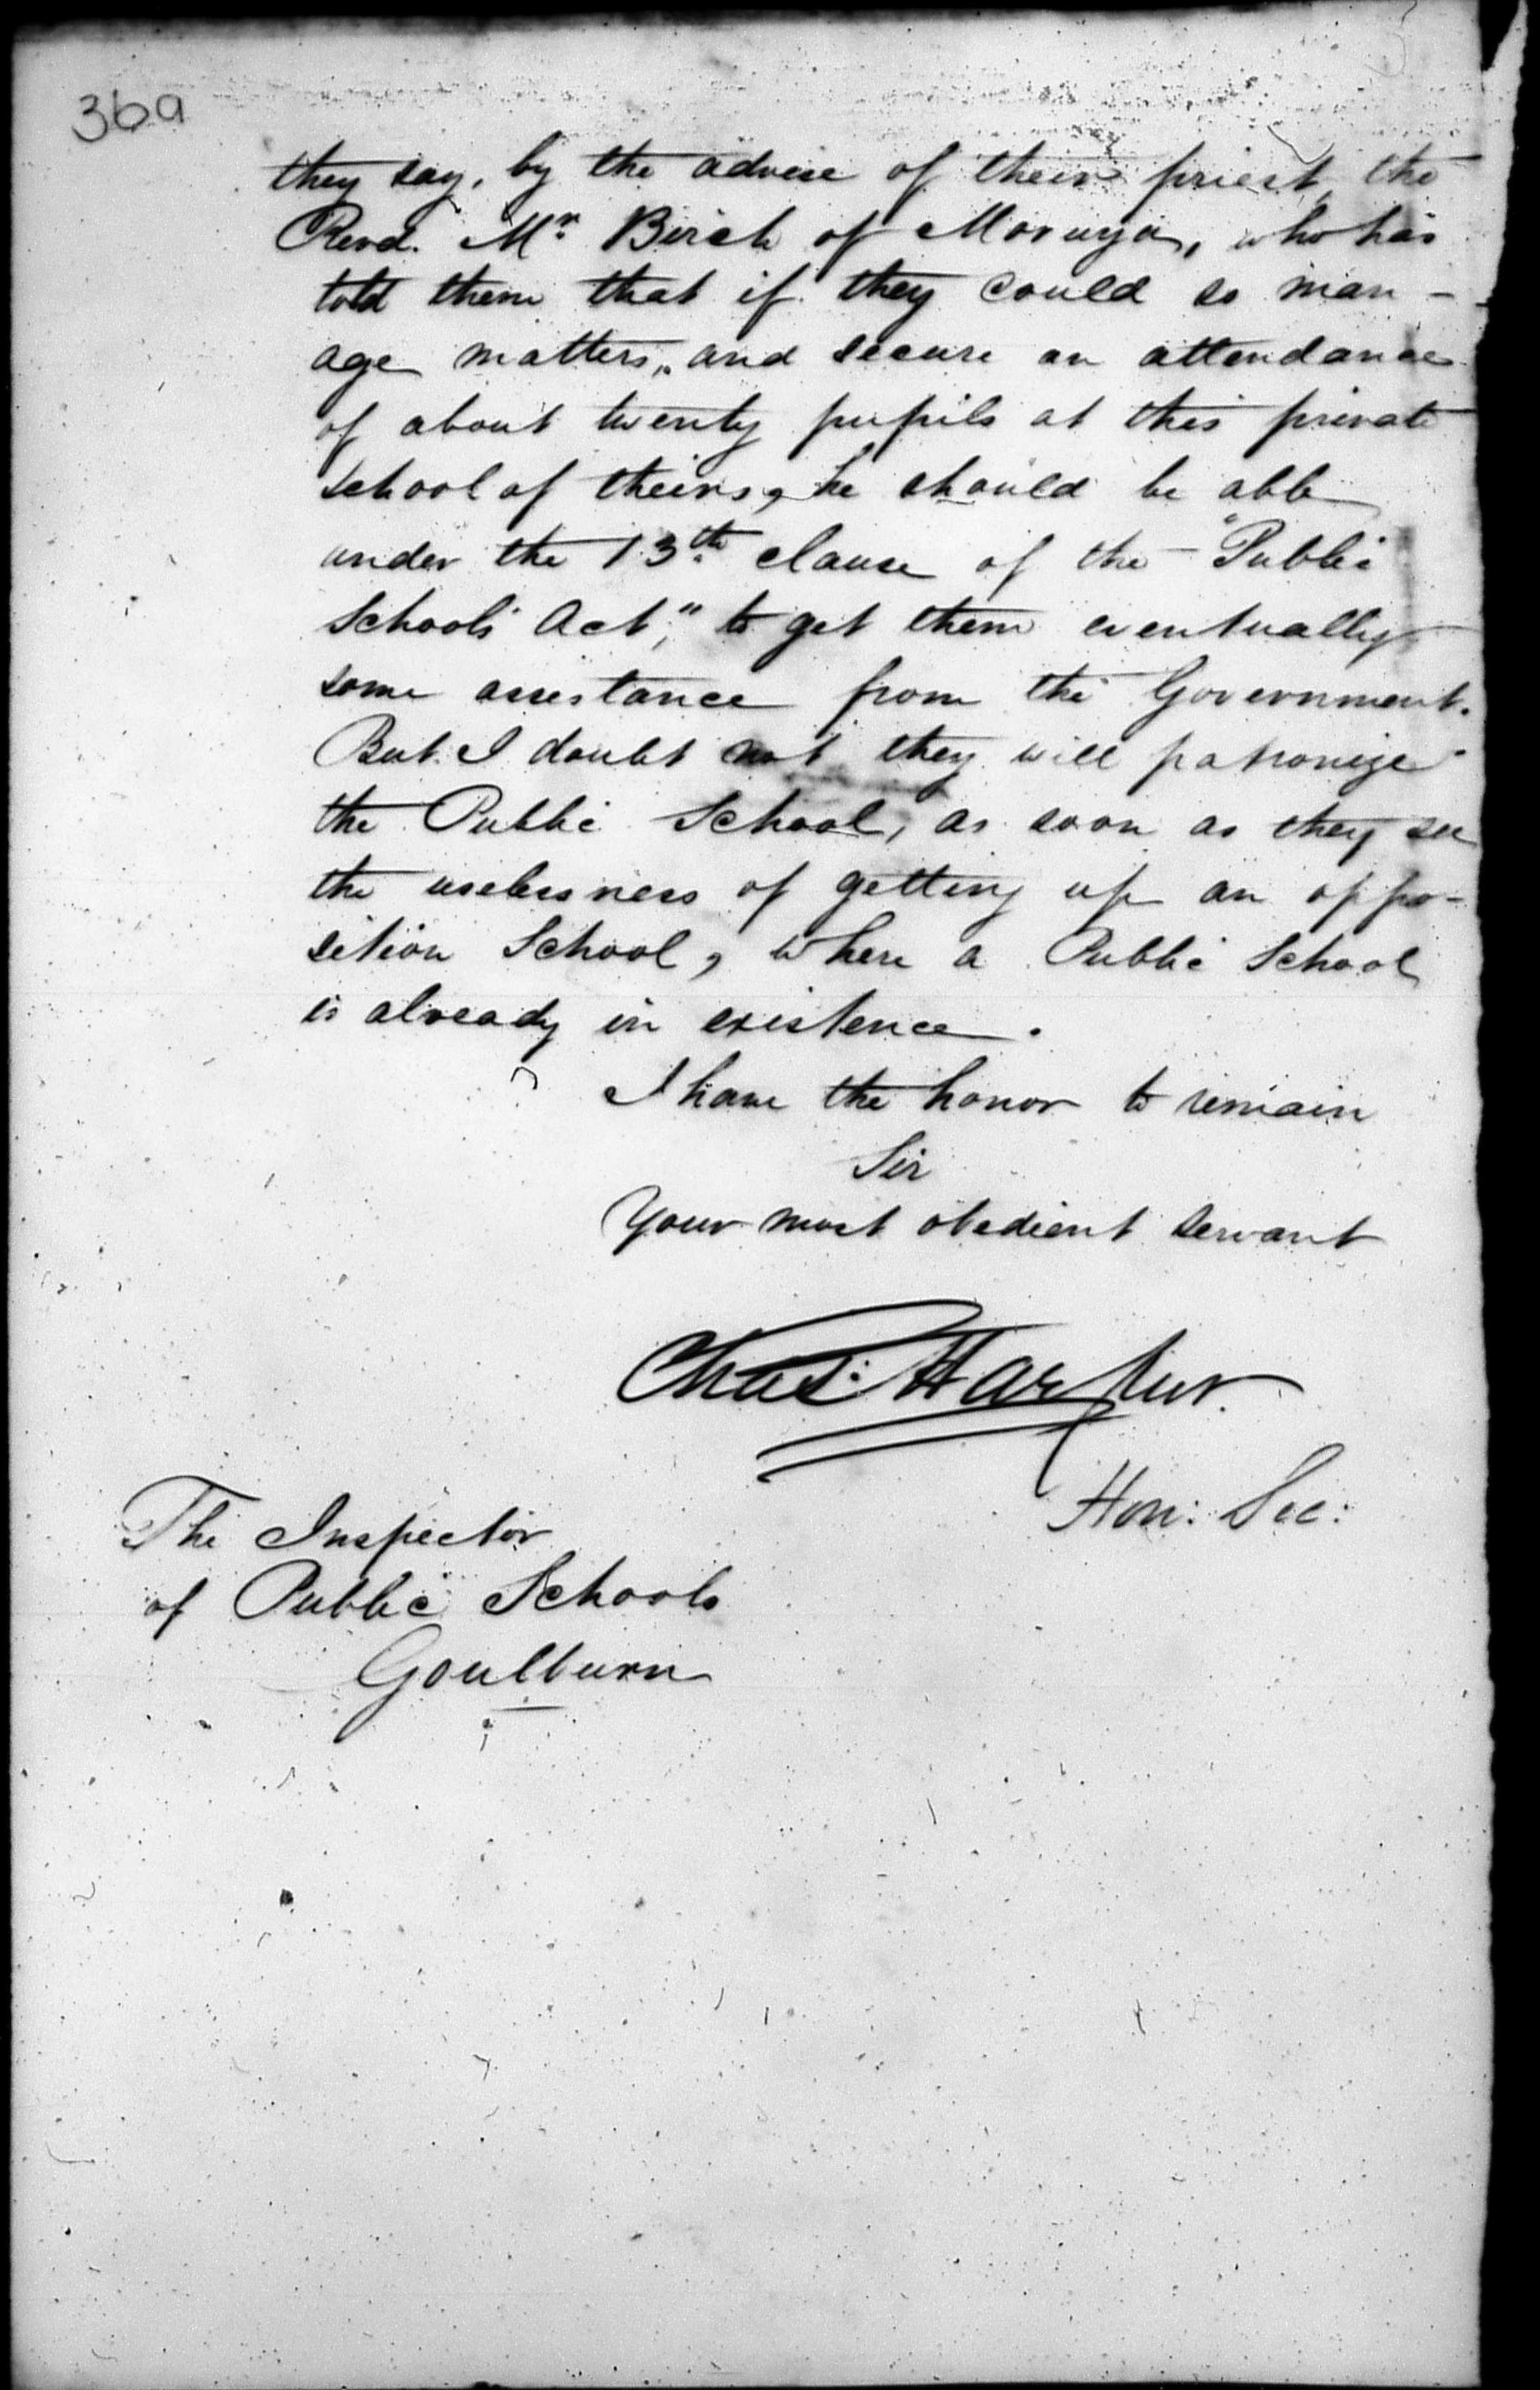 36a
they say, by the advice of their priest, the
Revd. Mr. Birch of Moruya, who has
told them that if they could so man-
age matters, and secure an attendance
of about twenty pupils at this private
school of theirs, he should be able
under the 13th clause of the "Public
Schools Act," to get them eventually
some assistance from the Government.
But I doubt not they will patronize
the Public School, as soon as they see
the uselessness of getting up an oppo-
sition School, where a Public School
is already in existence.
I have the honor to remain
Sir
Your most obedient servant
Chas: Harpur.
Hon: Sec:
The Inspector
of Public Schools
Goulburn